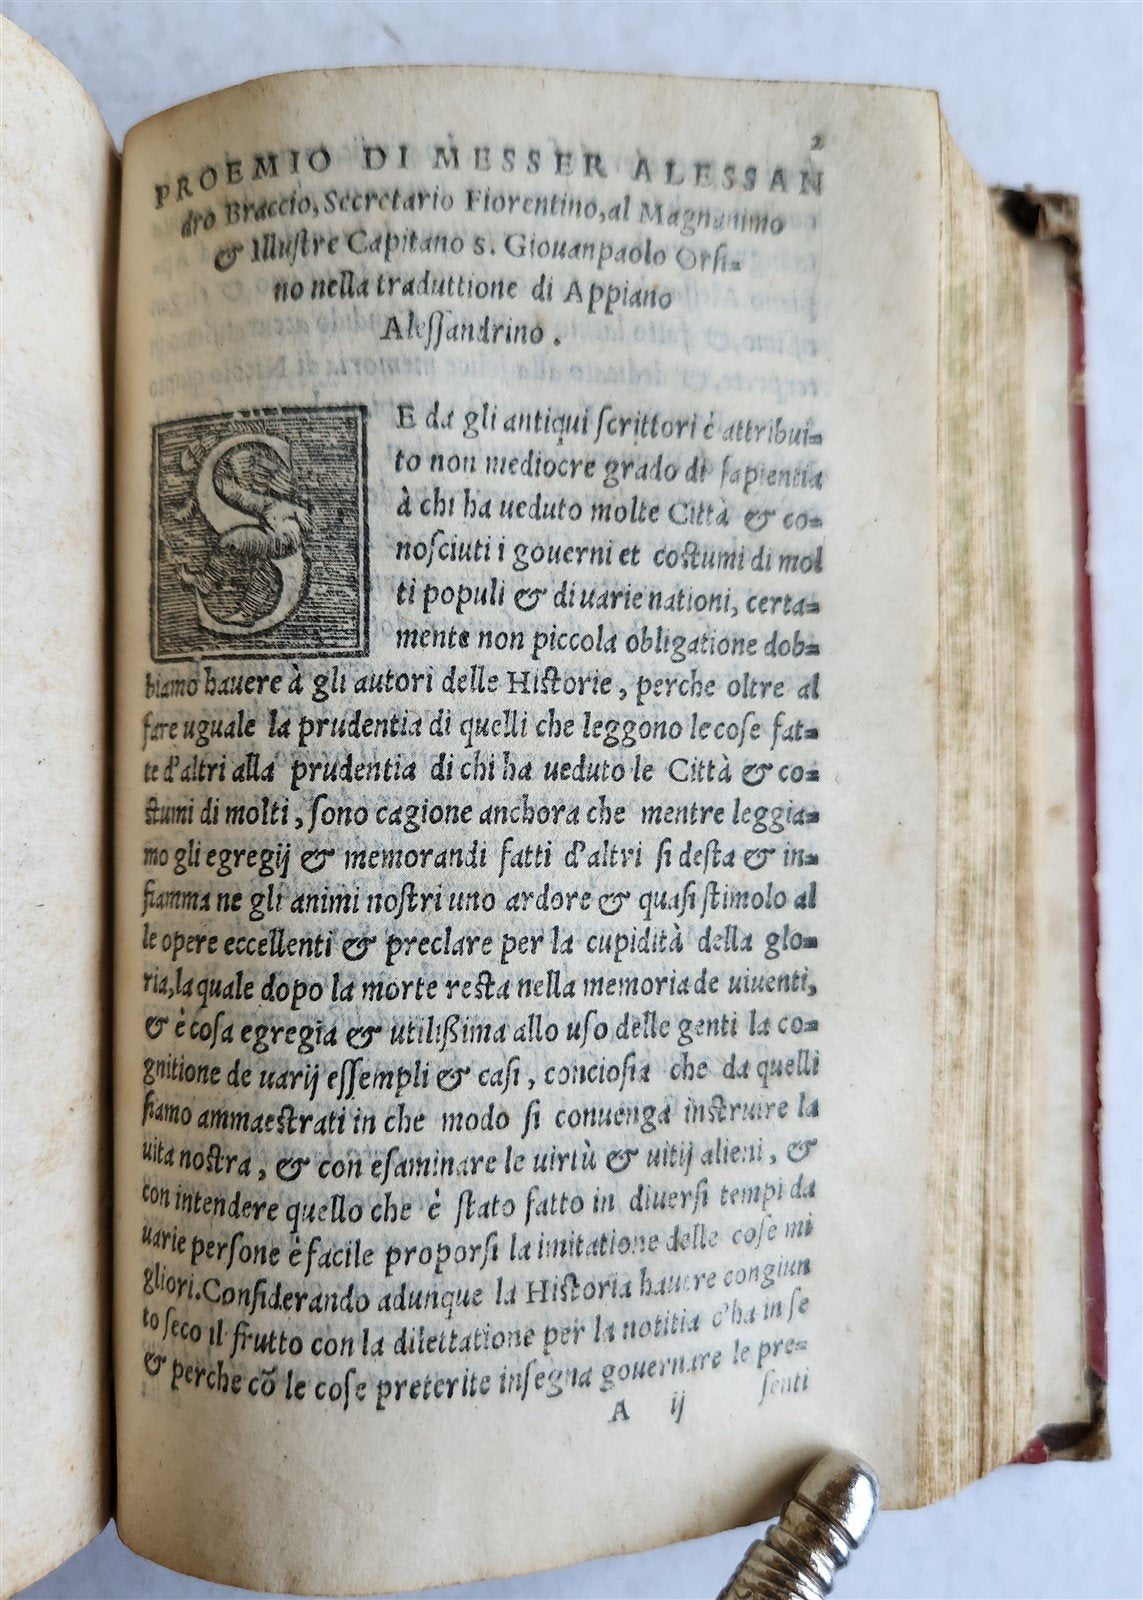 2
PROEMIO DI MESSER ALESSAN
dro Braccio, Secretario Fiorentino, al Magnanimo
& Illustre Capitano s. Giouanpaolo Orsi=
no nella traduttione di Appiano
Alessandrino.
SE da gli antiqui scrittori è attribui=
to non mediocre grado di sapientia
à chi ha ueduto molte Città & co=
nosciuti i gouerni et costumi di mol
ti populi & di uarie nationi, certa=
mente non piccola obligatione dob=
biamo hauere à gli autori delle Historie, perche oltre al
fare uguale la prudentia di quelli che leggono le cose fat=
te d'altri alla prudentia di chi ha ueduto le Città & co=
stumi di molti, sono cagione anchora che mentre leggia=
mo gli egregij & memorandi fatti d'altri si desta & in=
fiamma ne gli animi nostri uno ardore & quasi stimolo al
le opere eccellenti & preclare per la cupidità della glo=
ria, la quale dopo la morte resta nella memoria de uiuenti,
& è cosa egregia & utilißima allo uso delle genti la co=
gnitione de uarij essempli & casi, conciosia che da quelli
siamo ammaestrati in che modo si conuenga instruire la
uita nostra, & con esaminare le uirtù & uitij alieni, &
con intendere quello che è stato fatto in diuersi tempi da
uarie persone è facile proporsi la imitatione delle cose mi
gliori. Considerando adunque la Historia hauere congiun
to seco il frutto con la dilettatione per la notitia c'ha in se
& perche cõ le cose preterite insegna gouernare le pre=
A ij senti